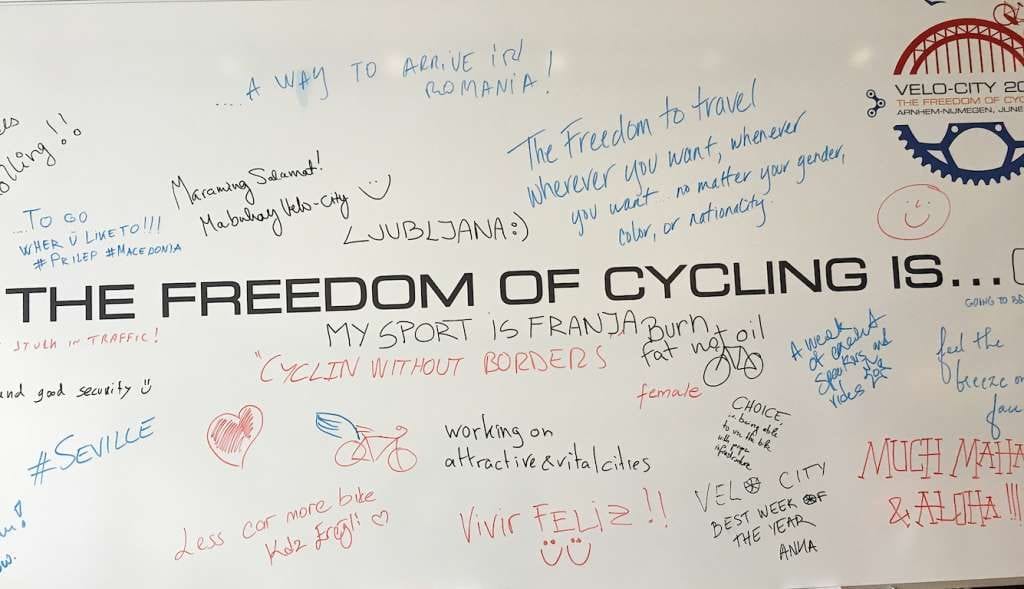 .... A WAY TO ARRIVE IN
ROMANIA!
VELO-CITY 20
THE FREEDOM OF CYC
ARNHEM-NIJMEGEN, JUNE
The Freedom to travel
wherever you want, whenever
you want... no matter your gender,
color, or nationality.
Maraming Salamat!
Mabuhay Velo-City
...TO GO
WHER Ü LIKE TO!!!
#PRILEP #MACEDONIA
LJUBLJANA:)
THE FREEDOM OF CYCLING IS...
GOING TO
STUCK IN TRAFFIC!
MY SPORT IS FRANJA
Burn
fat not oil
"CYCLIN WITHOUT BORDERS
female
A week
of
speakers and
rides
feel the
breeze on
and good security
#SEVILLE
working on
attractive & vital cities
CHOICE,
is being able
to use the bike
with proper
infrastructure
MUCH MAHA
& ALOHA !!!
Less car more bike
Kdz Ereğli
Vivir FELIZ !!
VELO CITY
BEST WEEK OF
THE YEAR
ANNA